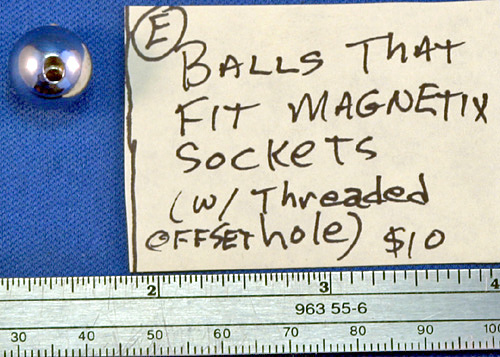 E
BALLS THAT
FIT MAGNETIX
SOCKETS
(W/ Threaded
OFFSET hole) $10
2 3 4
963 55-6
30 40 50 60 70 80 90 100